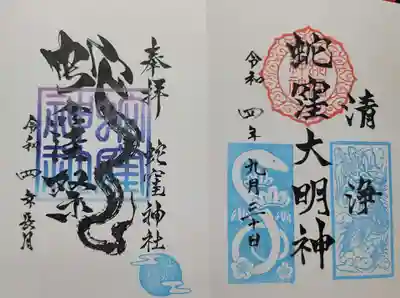 清浄
蛇窪大明神
令和四年
九月三十日
奉拝 蛇窪神社
蛇窪祭
令和四年長月